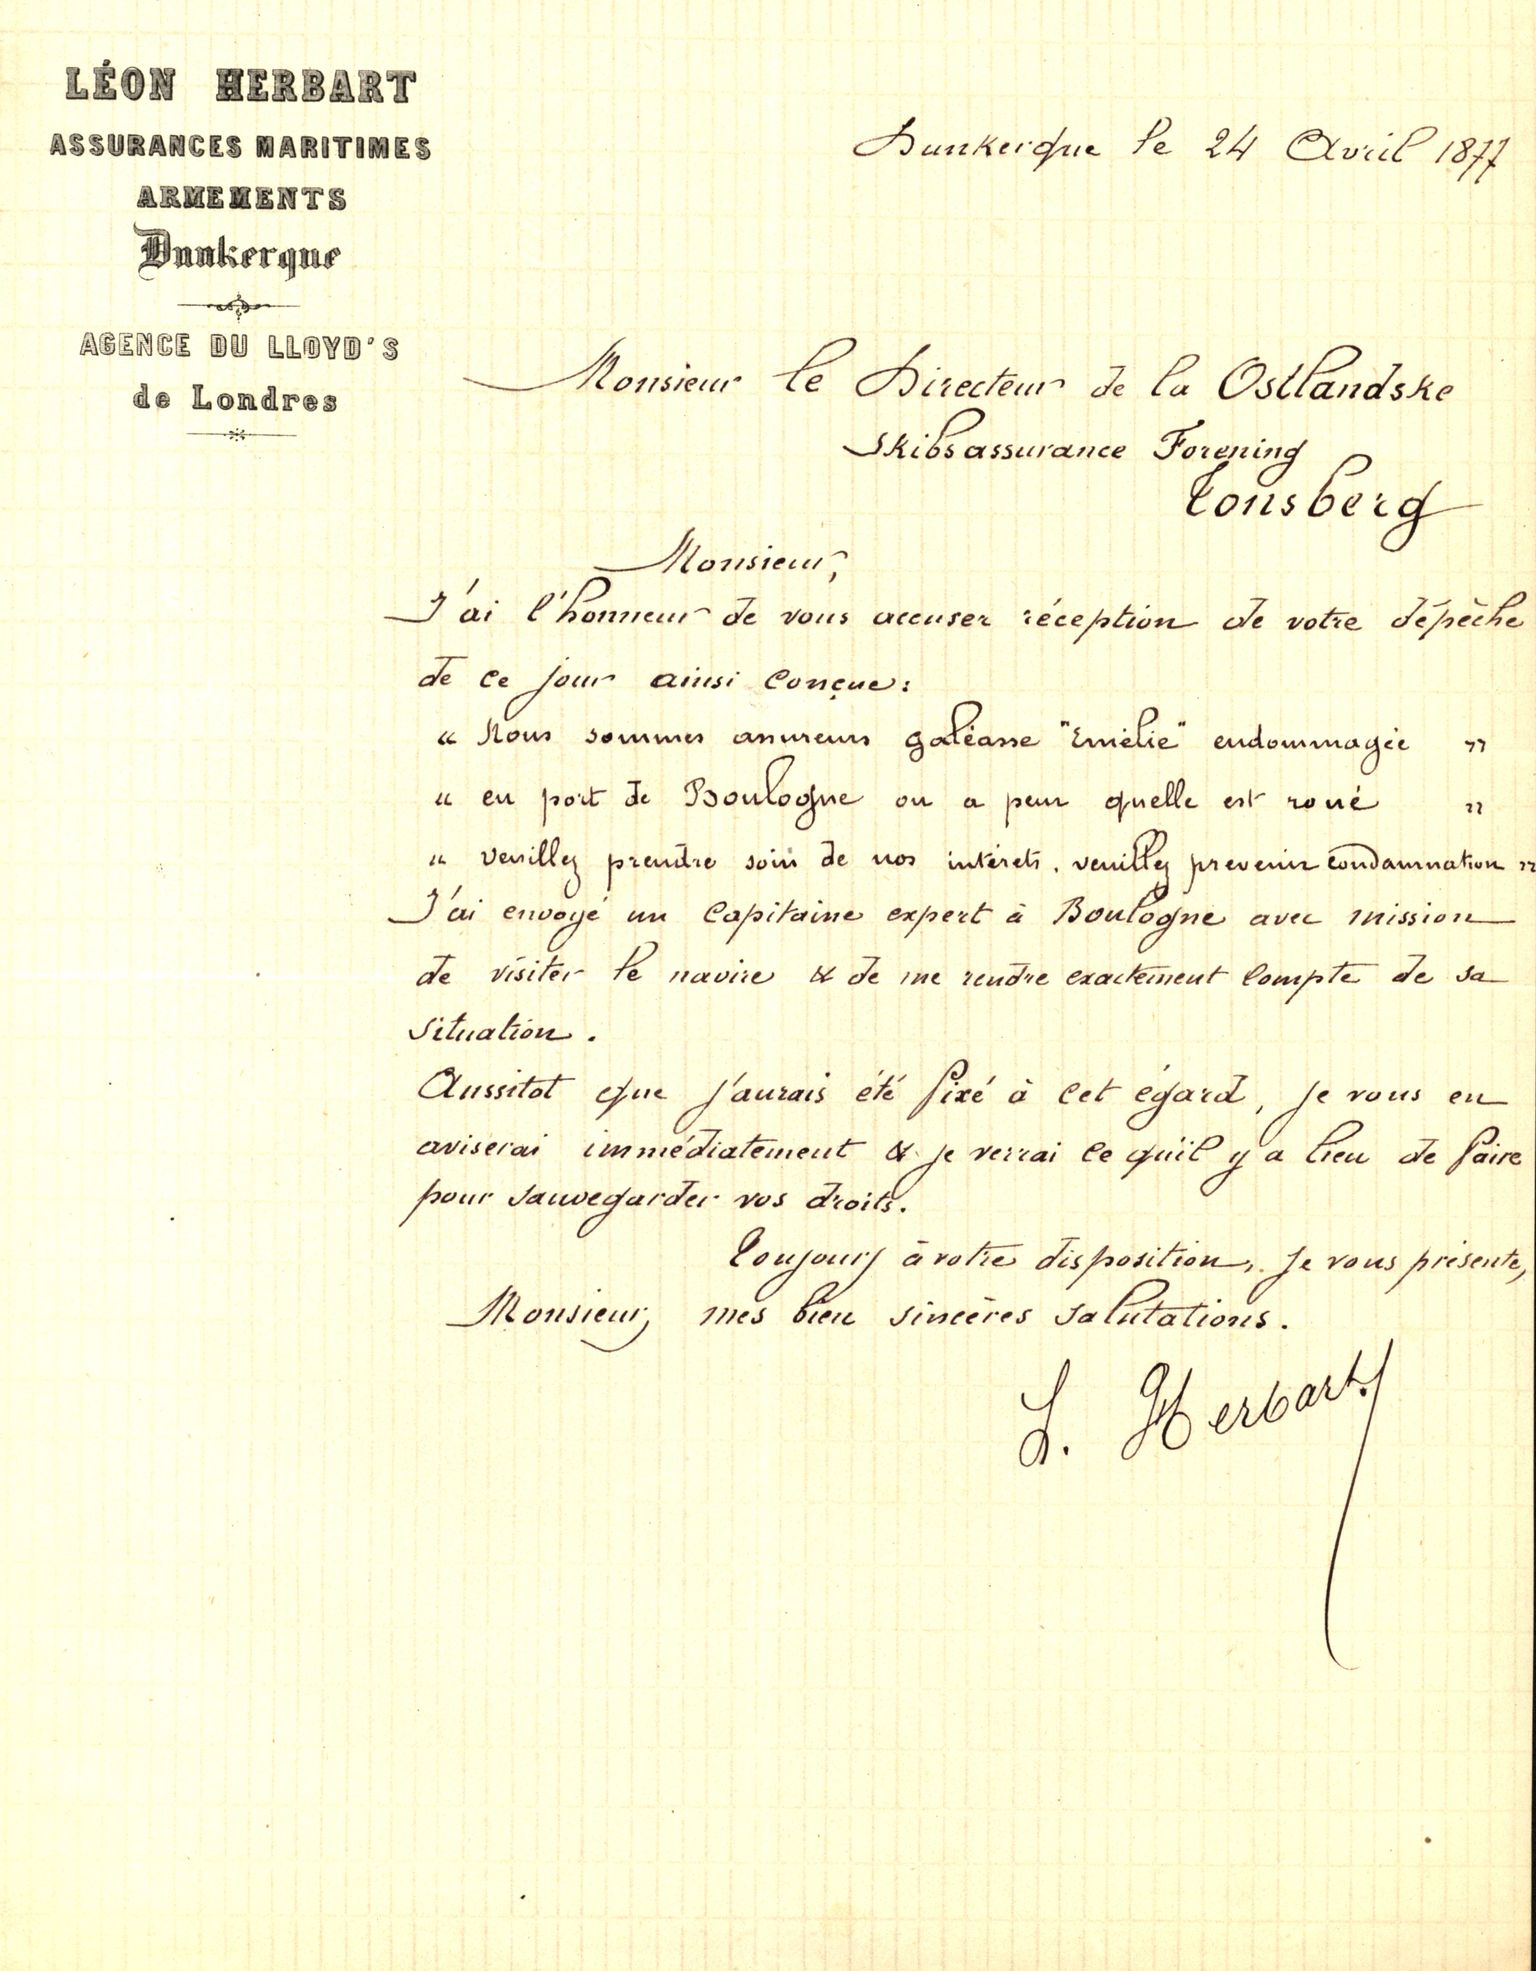 LÉON HERBART
ASSURANCES MARITIMES
ARMEMENTS
Dunkerque
AGENCE DU LLOYD'S
de Londres
Dunkerque le 24 Avril 1877
Monsieur le Directeur de la Ostlandske
Skibsassurance Forening
Tonsberg
Monsieur,
J'ai l'honneur de vous accuser réception de votre dépêche
de ce jour ainsi conçue:
" Nous sommes assureurs galéasse "Emélie" endommagée "
" en port de Boulogne on a peur quelle est roué "
" veuillez prendre soin de nos intérets. veuillez prevenir condamnation "
J'ai envoyé un Capitaine expert à Boulogne avec mission
de visiter le navire & de me rendre exactement compte de sa
situation.
Aussitot que j'aurais été fixé à cet égard, je vous en
aviserai immédiatement & je verrai ce qu'il y a lieu de faire
pour sauvegarder vos droits.
Toujours à votre disposition, je vous présente,
Monsieur, mes bien sincères salutations.
L. Herbart